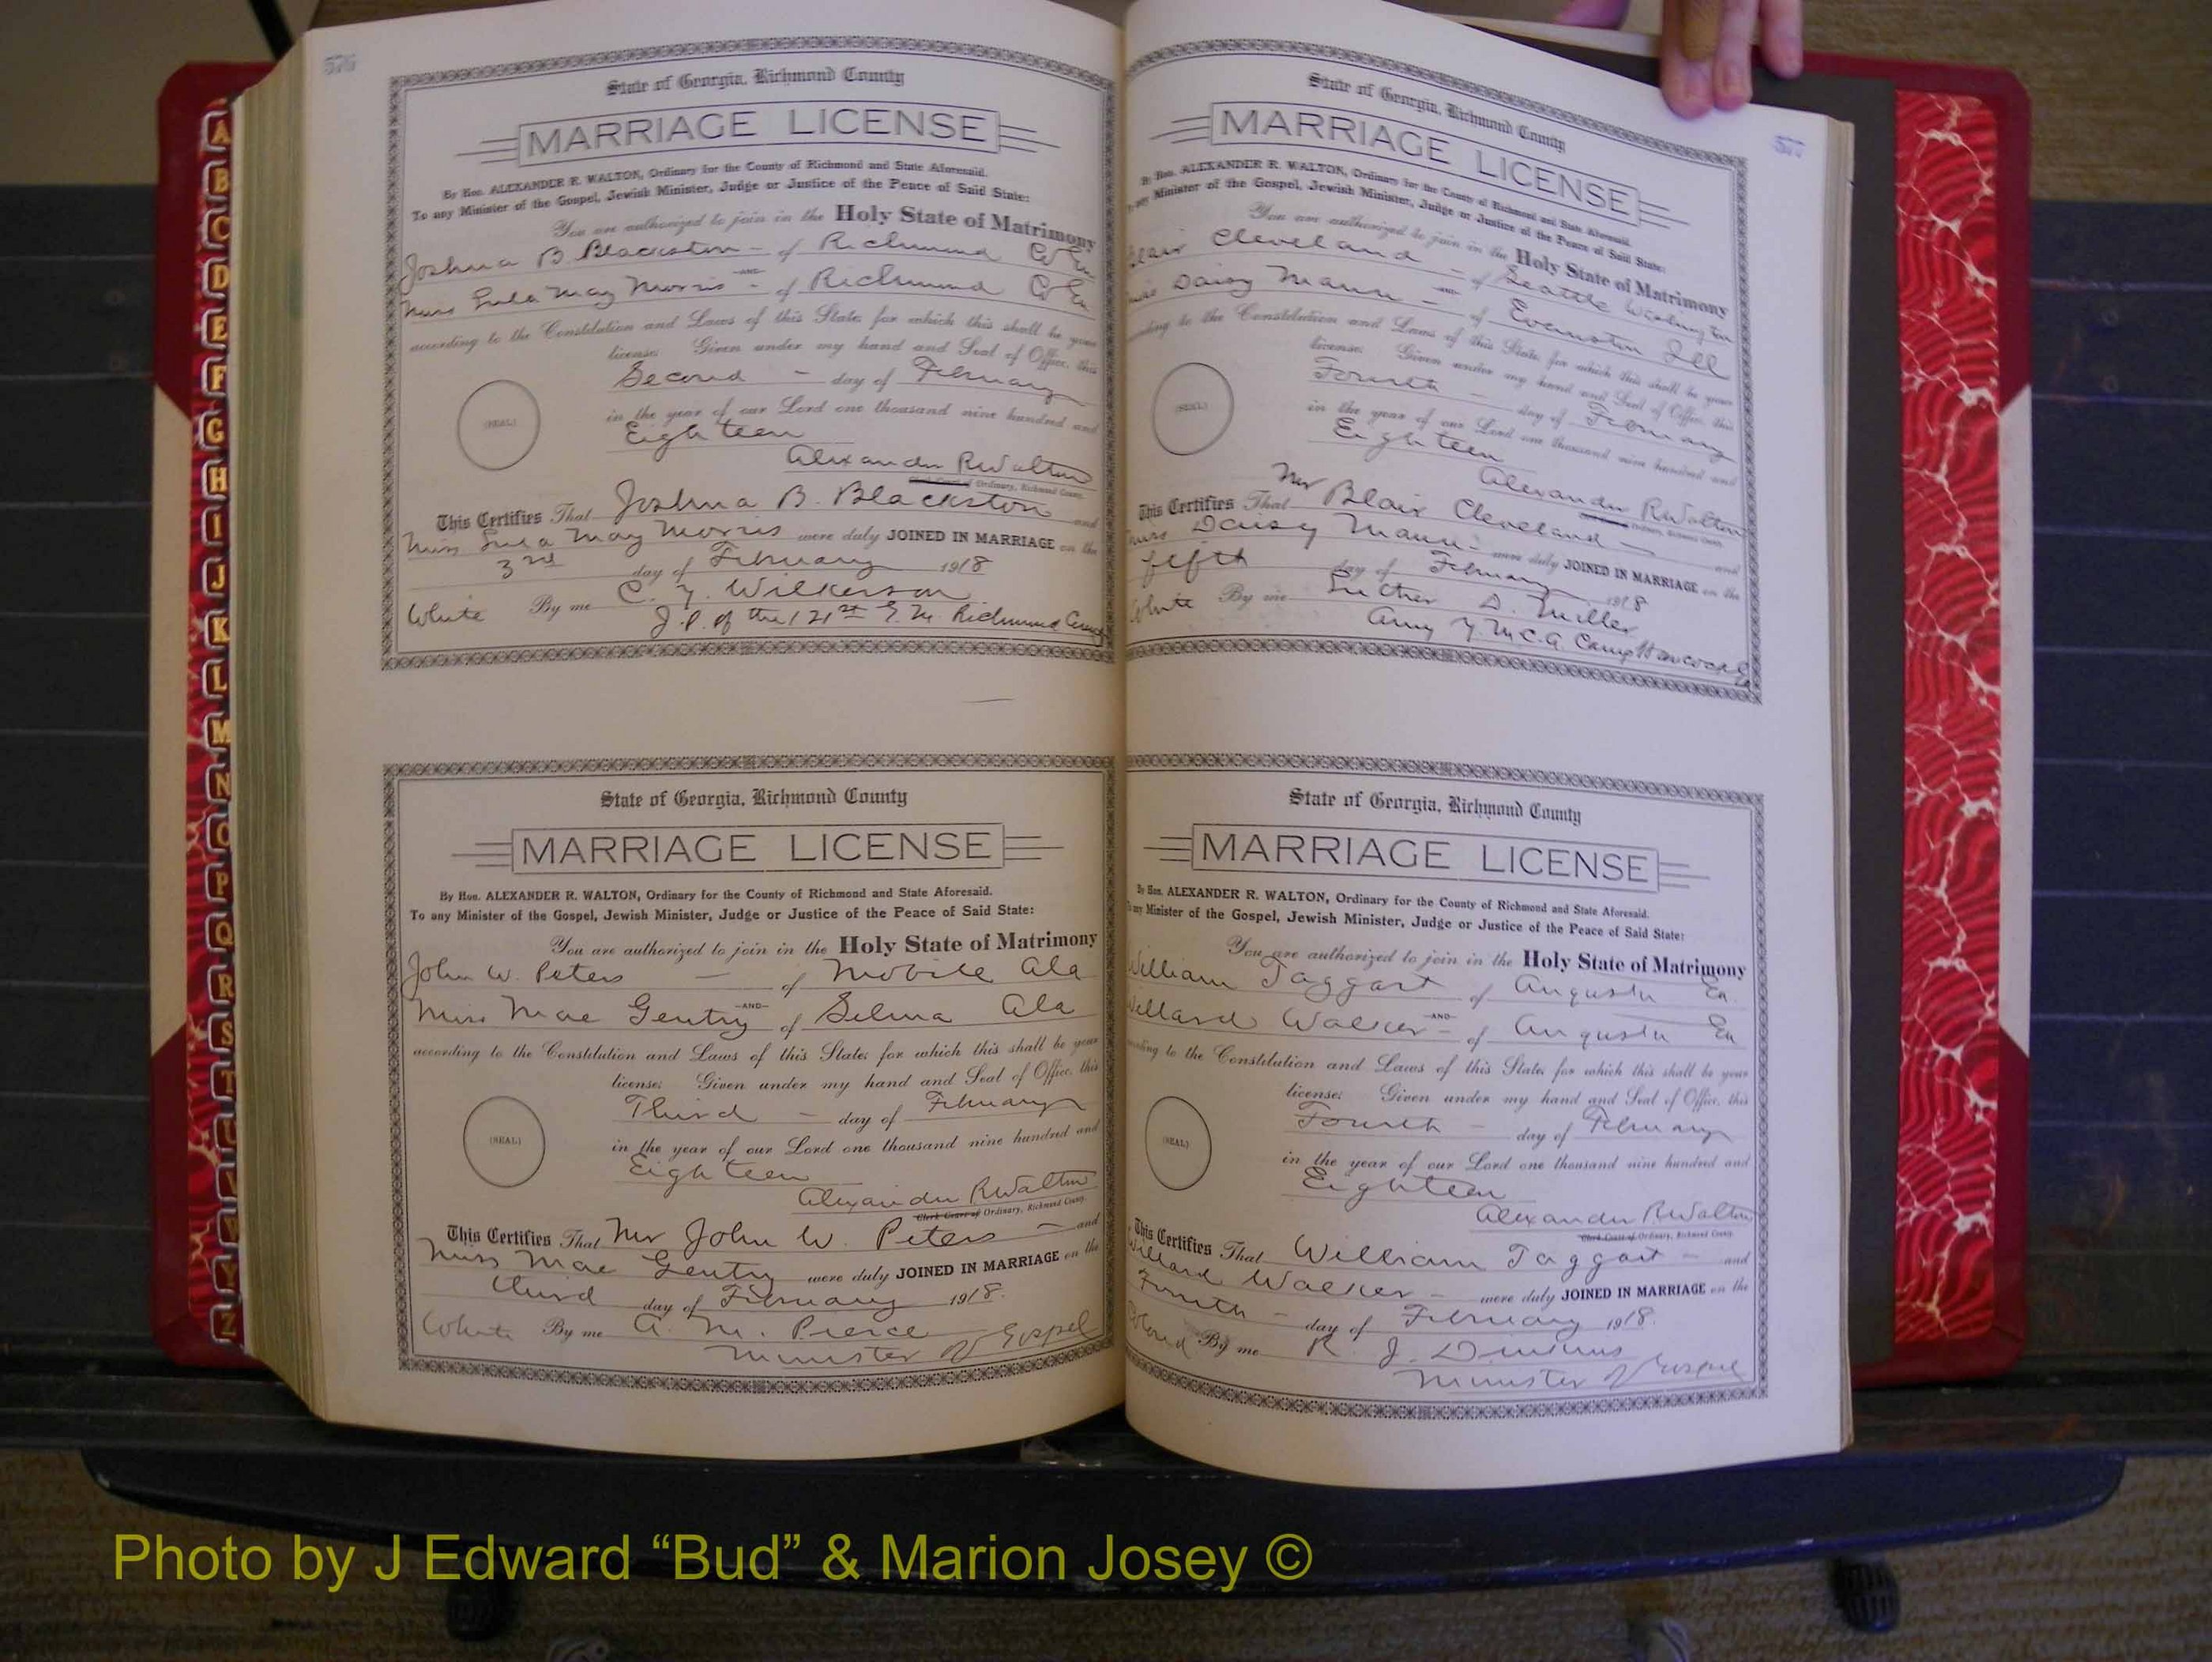 576
State of Georgia, Richmond County
MARRIAGE LICENSE
By Hon. ALEXANDER R. WALTON, Ordinary for the County of Richmond and State Aforesaid.
To any Minister of the Gospel, Jewish Minister, Judge or Justice of the Peace of Said State:
You are authorized to join in the Holy State of Matrimony
Joshua B Blackston - of Richmond Co Ga
-AND-
Miss Lula May Morris - of Richmond Co Ga
according to the Constitution and Laws of this State, for which this shall be your
license. Given under my hand and Seal of Office, this
Second - day of February
(SEAL)
in the year of our Lord one thousand nine hundred and
Eighteen
Alexander R Walton
Clerk Court of Ordinary, Richmond County.
This Certifies That Joshua B. Blackston and
Miss Lula May Morris were duly JOINED IN MARRIAGE on the
3rd day of February 1918
White By me C. Wilkerson
J.P. of the 121st G. M. Richmond County
State of Georgia, Richmond County
MARRIAGE LICENSE
By Hon. ALEXANDER R. WALTON, Ordinary for the County of Richmond and State Aforesaid.
To any Minister of the Gospel, Jewish Minister, Judge or Justice of the Peace of Said State:
You are authorized to join in the Holy State of Matrimony
John W. Peters - of Mobile Ala
-AND-
Miss Mae Gentry of Selma Ala
according to the Constitution and Laws of this State, for which this shall be your
license. Given under my hand and Seal of Office, this
Third - day of February
(SEAL)
in the year of our Lord one thousand nine hundred and
Eighteen
Alexander R Walton
Clerk Court of Ordinary, Richmond County.
This Certifies That Mr John W. Peters - and
Miss Mae Gentry were duly JOINED IN MARRIAGE on the
third day of February 1918.
White By me A. M. Pierce
Minister of Gospel
577
State of Georgia, Richmond County
MARRIAGE LICENSE
By Hon. ALEXANDER R. WALTON, Ordinary for the County of Richmond and State Aforesaid.
To any Minister of the Gospel, Jewish Minister, Judge or Justice of the Peace of Said State:
You are authorized to join in the Holy State of Matrimony
Blair Cleveland - of Seattle Washington
-AND-
Daisy - of Evanston Ill
according to the Constitution and Laws of this State, for which this shall be your
license. Given under my hand and Seal of Office, this
Fourth - day of February
(SEAL)
in the year of our Lord one thousand nine hundred and
Eighteen
Alexander R Walton
Ordinary, Richmond County.
This Certifies That Mr Blair Cleveland - and
Miss Daisy were duly JOINED IN MARRIAGE on the
fifth day of February 1918
White By me Luther D. Miller
Army Y.M.C.A. Camp Hancock Ga
State of Georgia, Richmond County
MARRIAGE LICENSE
By Hon. ALEXANDER R. WALTON, Ordinary for the County of Richmond and State Aforesaid.
To any Minister of the Gospel, Jewish Minister, Judge or Justice of the Peace of Said State:
You are authorized to join in the Holy State of Matrimony
William Taggart of Augusta Ga.
-AND-
Willard Walker - of Augusta Ga
according to the Constitution and Laws of this State, for which this shall be your
license. Given under my hand and Seal of Office, this
Fourth - day of February
(SEAL)
in the year of our Lord one thousand nine hundred and
Eighteen
Alexander R Walton
Clerk Court of Ordinary, Richmond County.
This Certifies That William Taggart - and
Willard Walker - were duly JOINED IN MARRIAGE on the
Fourth - day of February 1918.
Colored By me R. J.
Minister of Gospel
A
B
C
D
E
F
G
H
I
J
K
L
M
N
O
P
Q
R
S
T
U
V
W
Y
Z
Photo by J Edward “Bud” & Marion Josey ©